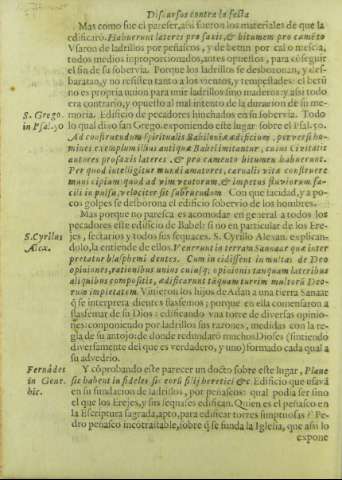 Discursos contra la secta
Mas como fue el pareser, asi fueron los materiales de que la
edificarõ. Habuerunt lateres pro saxis, & bitumem pro camẽto
Vsaron de ladrillos por peñascos, y de betun por cal o mescla,
todos medios improporcionados, antes opuestos, para conseguir
el fin de su sobervia. Porque los ladrillos se desboronan, y des-
baratan, y no resisten tanto a los vientos, y tempestades: el betũ
no es propria union para unir ladrillos sino madera: y asi todo
era contrario, y opuesto al mal intento de la duracion de su me-
moria. Edificio de pecadores hinchados en su sobervia. Todo
S. Grego.
in Psal. 50
lo qual dixo san Grego. exponiendo este lugar sobre el Psal. 50.
Ad construendum spiritualis Babilonia ædificium, perversi ho-
mines exemplum illius antiquæ Babel imitantur, cuius Civitatis
autores pro saxis lateres, & pro camento bitumen habuerunt.
Per quod intelligitur mundi amatores, carnalis vita construere
municipium: quod ad vim ventorum, & impetus fluviorum fa-
cili impulsu, velociter sit subruendum. Con que facidad, y a po-
cos golpes se desborona el edificio sobervio de los hombres.
Mas porque no paresca es acomodar en general a todos los
pecadores este edificio de Babel: si no en particular de los Ere-
S. Cyrillus
Alex.
jes, sectarios y todos sus sequaces. S. Cyrillo Alexan. explican-
dolo, la entiende de ellos. Venerunt in terram Sannaar qua inter
pretatur blasphemi dentes. Cum in cidissent in multas de Deo
opiniones, rationibus unius cuiusq; opinionis tanquam lateribus
aliquibus compositis, ædificarunt tãquam turrim multorũ Deo-
rum impietatem. Vinieron los hijos de Adan a una tierra Sanaar
q̃ se interpreta dientes blasfemos; porque en ella comensaron a
blasfemar de su Dios: edificando vna torre de diversas opinio-
nes: componiendo por ladrillos sus razones, medidas con la re-
gla de su antojo; de donde redundarõ muchos Dioses (sintiendo
diversamente del que es verdadero, y uno) formado cada qual a
su advedrio.
Fernãdes
in Gene.
hic.
Y cõprobando este parecer un docto sobre este lugar, Plane
sic habent in fideles sic eorũ filij heretici &c Edificio que usavã
en su fundacion de ladrillos, por peñascos: qual podia ser sino
el que los Erejes, y sus sequases edifican. Quien es el peñasco en
la Escriptura sagrada, apto, para edificar torres sumptuosas? Pe-
dro peñasco incontrastable, sobre q̃ se funda la Iglesia, que asi lo
expone